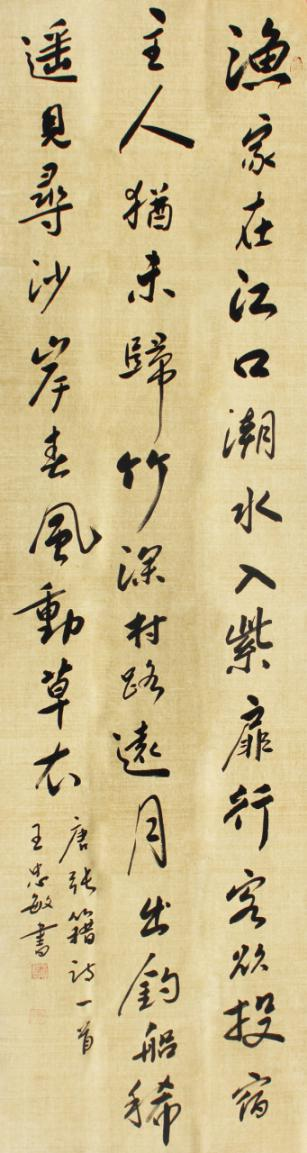 漁家在江口潮水入紫扉行客欲投宿
主人猶未歸竹深村路遠月出釣船稀
遥見尋沙岸春風動草衣
唐張籍詩一首
王忠敏書